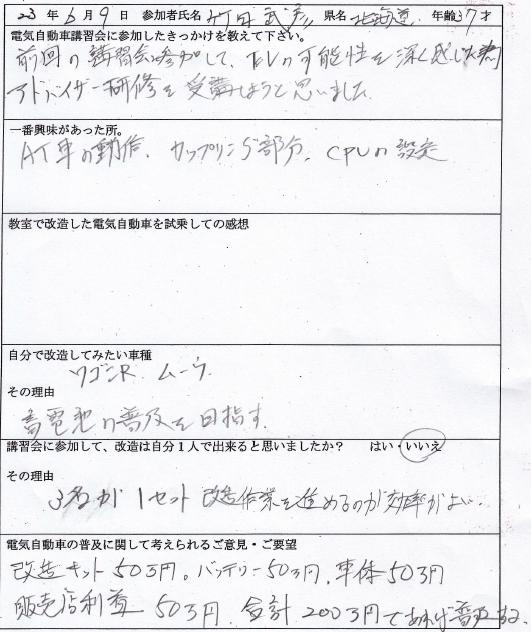 23年6月9日 参加者氏名 竹田武彦 県名 北海道 年齢37才
電気自動車講習会に参加したきっかけを教えて下さい。
前回の講習会参加して、EVの可能性を深く感じた為
アドバイザー研修を受講しようと思いました
一番興味があった所。
AT車の動作、カップリング部分、CPUの設定
教室で改造した電気自動車を試乗しての感想
自分で改造してみたい車種
ワゴンR ムーヴ
その理由
蓄電池の普及を目指す
講習会に参加して、改造は自分1人で出来ると思いましたか? はい・いいえ
その理由
3名が1セット改造作業を進めるのが効率がよい
電気自動車の普及に関して考えられるご意見・ご要望
改造キット50万円。バッテリー50万円、車体50万円
販売店利益 50万円、合計 200万円であれば普及する